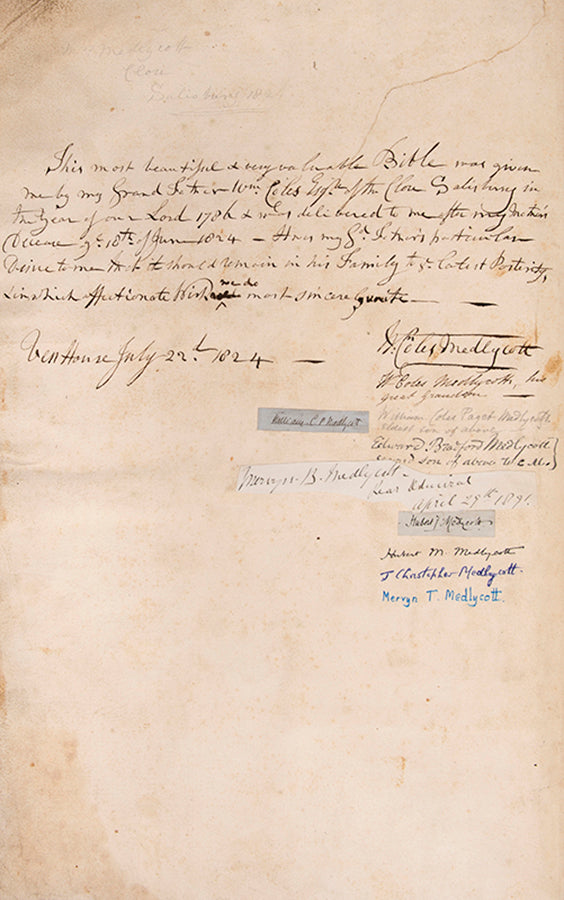 Medlycott
Close
Salisbury 182
This most beautiful & very valuable Bible was given
me by my Grand Father Wm. Coles Esqr. of the Close Salisbury in
the Year of our Lord 1786 & was delivered to me after my Mother's
Decease ye. 18th. of June 1824 – It was my Gd. Father's particular
Desire to me that it should remain in his Family to ye. latest Posterity,
in which affectionate Wish we do most sincerely unite –
Ven House July 22d. 1824 –
Wm. Coles Medlycott
Wm Coles Medlycott, his
great Grandson –
William Coles Paget Medlycott
eldest son of above
William C P Medlycott
Edward Bradford Medlycott
son of above
Mervyn B. Medlycott –
Rear Admiral
April 29th 1891.
Hubert J Medlycott
Hubert M. Medlycott
J Christopher Medlycott.
Mervyn T. Medlycott.